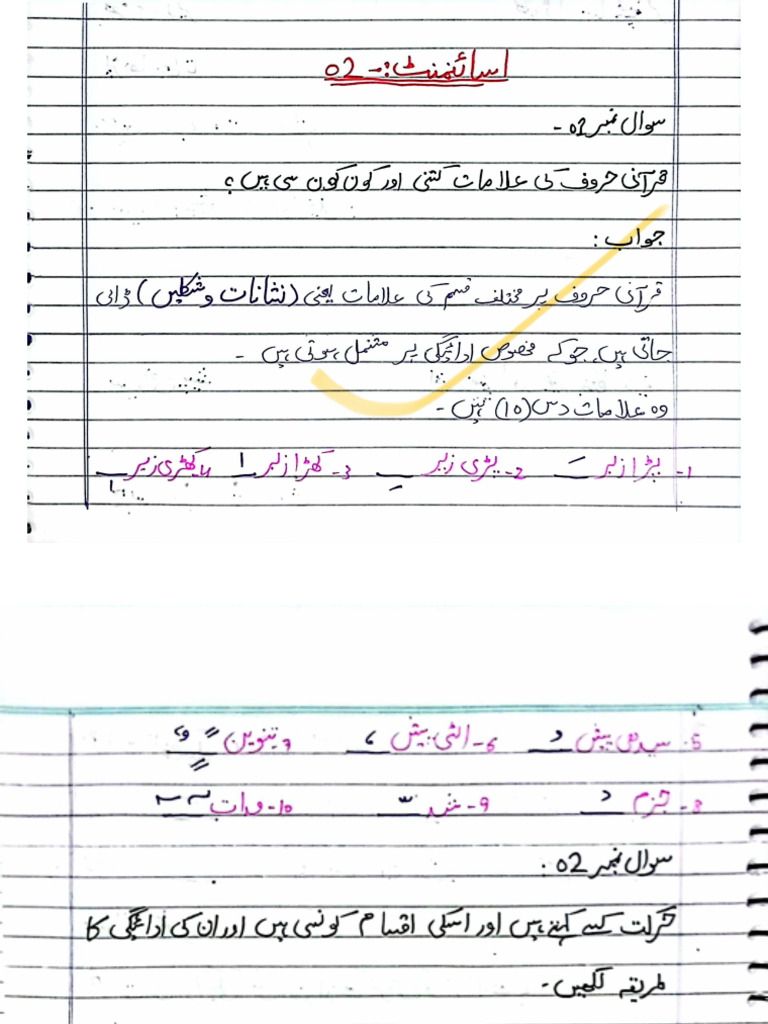 اسائنمنٹ:- 02
سوال نمبر 02 -
قرآنی حروف کی علامات کتنی اور کون کون سی ہیں ؟
جواب :
قرآنی حروف پر مختلف قسم کی علامات یعنی (نشانات و شکلیں) ڈالی
جاتی ہیں، جو کے مخصوص ادائیگی پر مشتمل ہوتی ہیں -
وہ علامات دس (10) ہیں -
1- پڑا زبر ـَ 2- پڑی زیر ـِ 3- کھڑا زبر ـٰ 4- کھڑی زیر ـٖ
5- سیدھی پیش ـُ 6- الٹی پیش ـٗ 7- تنوین ـً ـٍ ـٌ
8- جزم 9- شد ـّ 10- مدات ~ ~
سوال نمبر 02 :
حرکت کسے کہتے ہیں اور اسکی اقسام کونسی ہیں اور ان کی ادائیگی کا
طریقہ لکھیں -